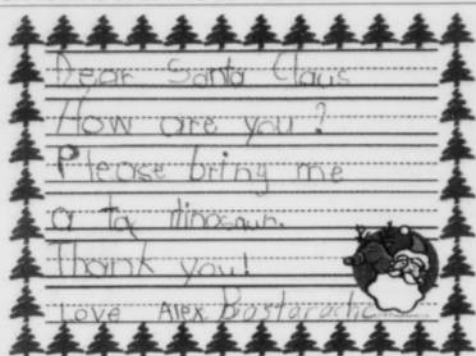 Dear Santa Claus
How are you?
Please bring me
a tox dinosaur.
Thank you!
Love Alex